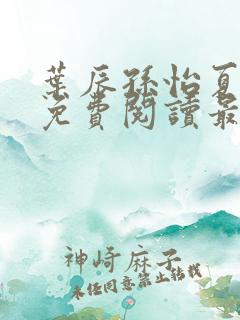 葉辰孫怡夏
免費閱讀最
神崎麻子
未经同意禁止转载